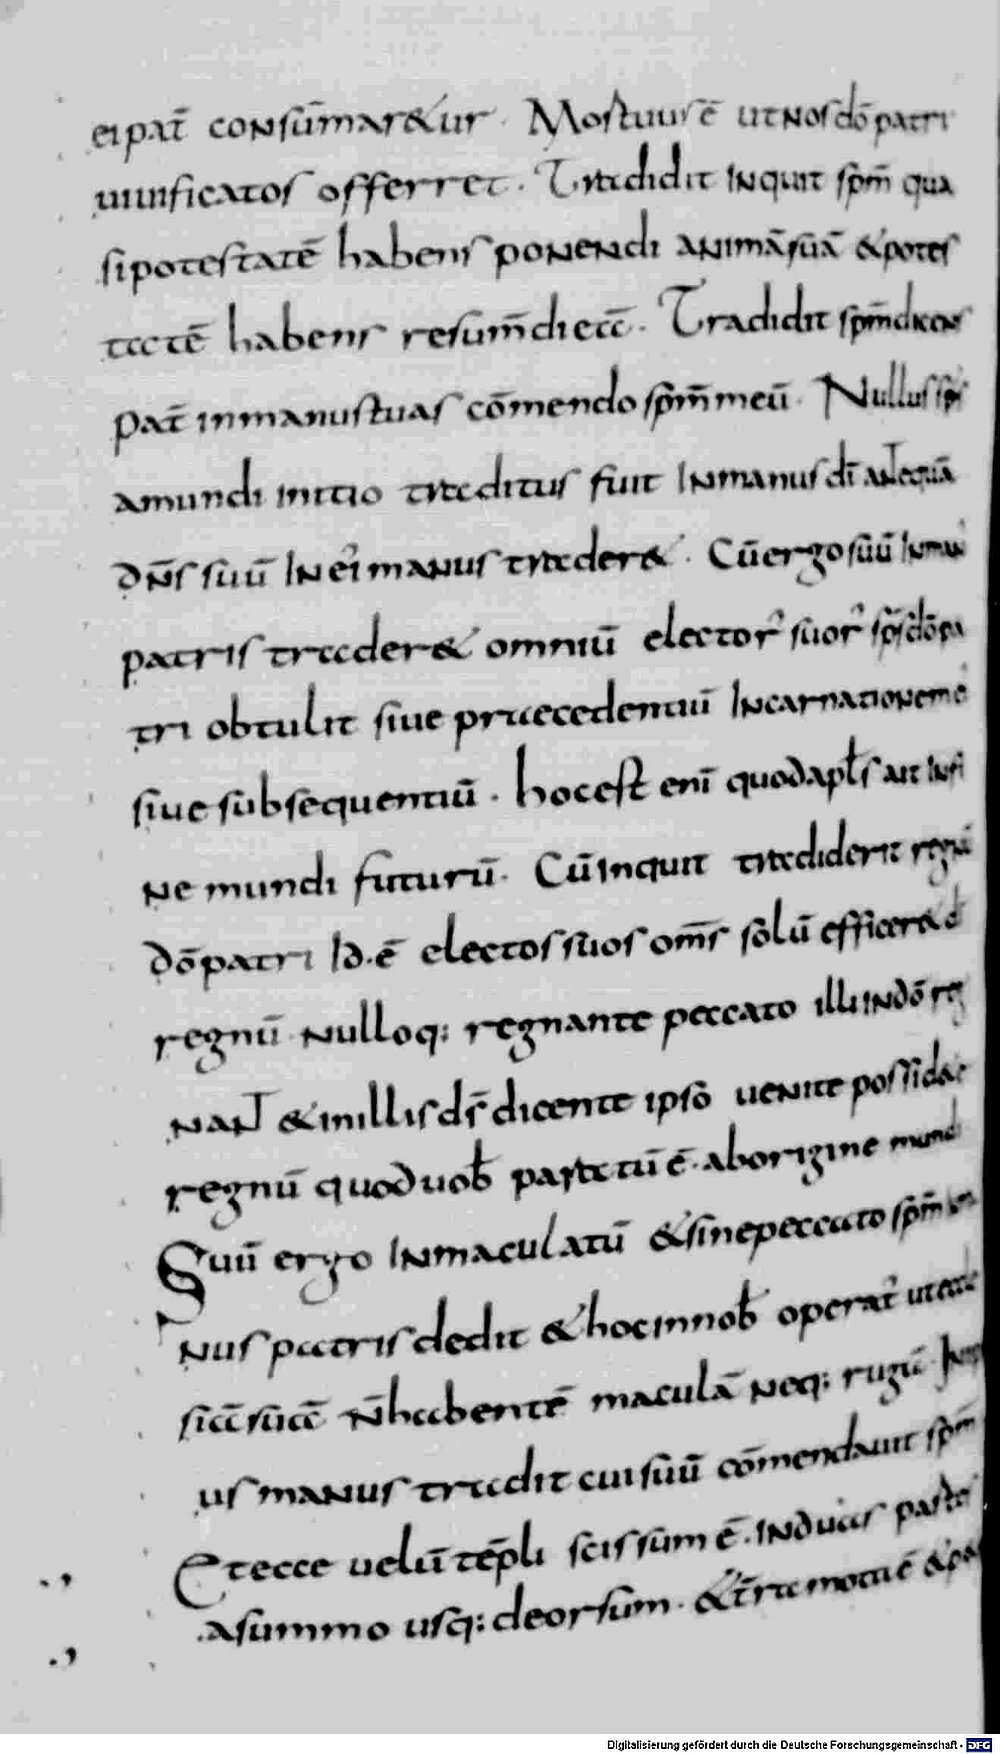 ei pat̄ consūmar&ur. Mostuus ē utnos dō patri
uiuificatos offerret. Tradidit inquit sp̄m qua
si potestatē habens ponendi animā suā & potes
tatē habens resum̄di eā. Tradidit sp̄m dicens
pat̄ inmanus tuas cōmendo sp̄m meū. Nullus sp̄s
amundi initio traditus fuit inmanus dī antequā
dn̄s suū in ei' manus trader&. Cū ergo suū inman'
patris trader& omniū elector' suor' sp̄s dō pa
tri obtulit siue praecedentiū incarnationem ei'
siue subsequentiū. hoc est enī quod apl̄s ait infi
ne mundi futurū. Cū inquit tradiderit regnū
dō patri id. ē electos suos om̄s solū efficer& dī
regnū nulloq; regnante peccato illi indō reg
nant & inillis dš dicente ipso uenite possid&e
regnū quod uob̄ paratū ē. aborigine mundi
Suū ergo inmaculatū & sinepeccato sp̄m
nus patris dedit & hoc innob̄ operat' ut
siā suā n̄ habentē maculā neq; rugā.
us manus tradit cui suū cōmendauit sp̄m
Et ecce uelū tēpli scissum ē. induas partes
asummo usq; deorsum. & t̄ra mota ē & pe